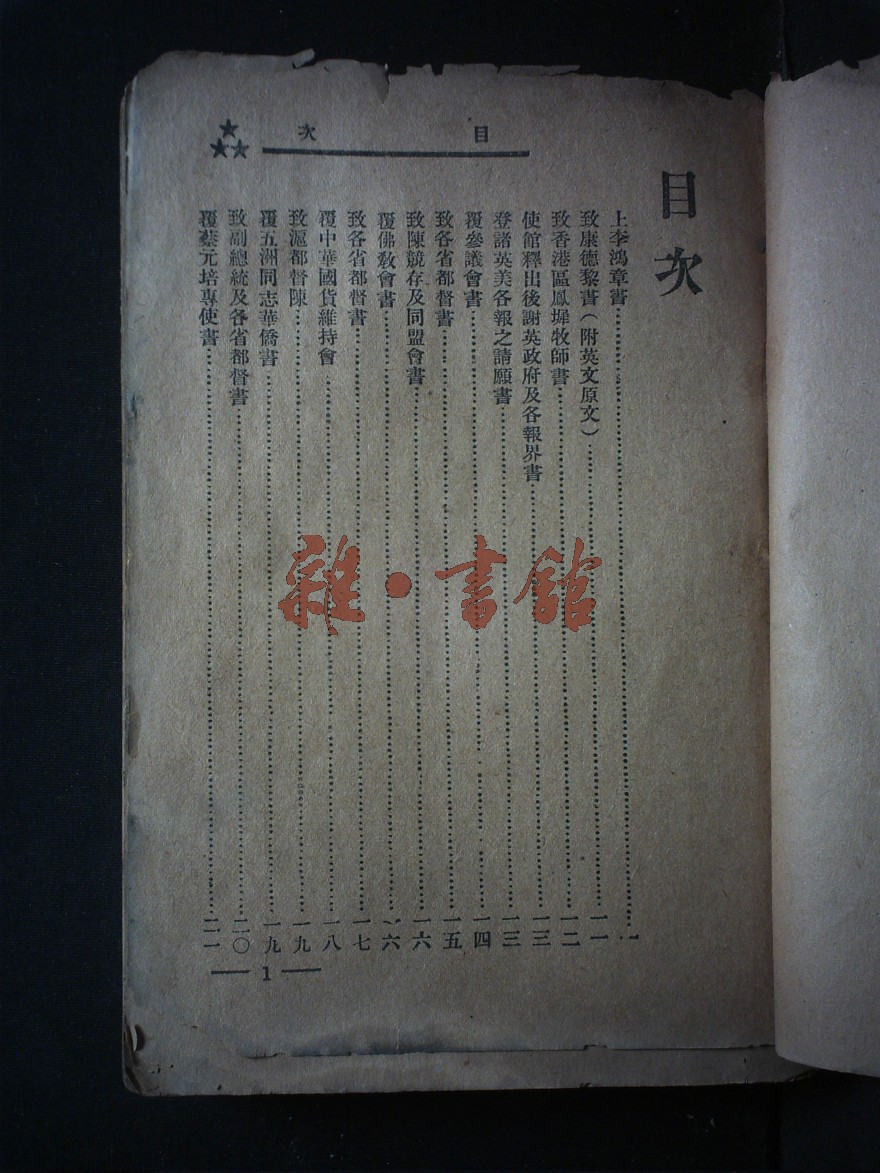 目次
目次
上李鴻章書……一
致康德黎書(附英文原文)……一一
致香港區鳳墀牧師書……一二
使館釋出後謝英政府及各報界書……一三
登諸英美各報之請願書……一三
覆參議會書……一四
致各省都督書……一五
致陳競存及同盟會書……一六
覆佛教會書……一六
致各省都督書……一七
覆中華國貨維持會……一八
致滬都督陳……一九
覆五洲同志華僑書……一九
致副總統及各省都督書……二〇
覆蔡元培專使書……二一
1
雜·書館